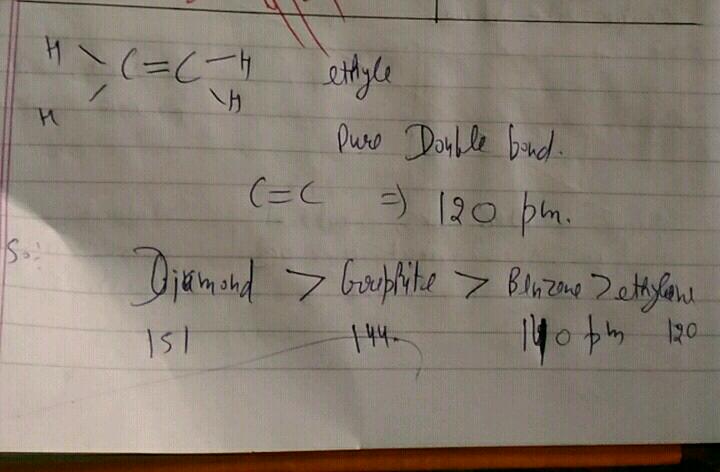 H C=C H ethyle
H H
Pure Double bond.
C=C ⇒ 120 pm.
So:
Diamond > Graphite > Benzene > ethylene
151 144. 140 pm 120